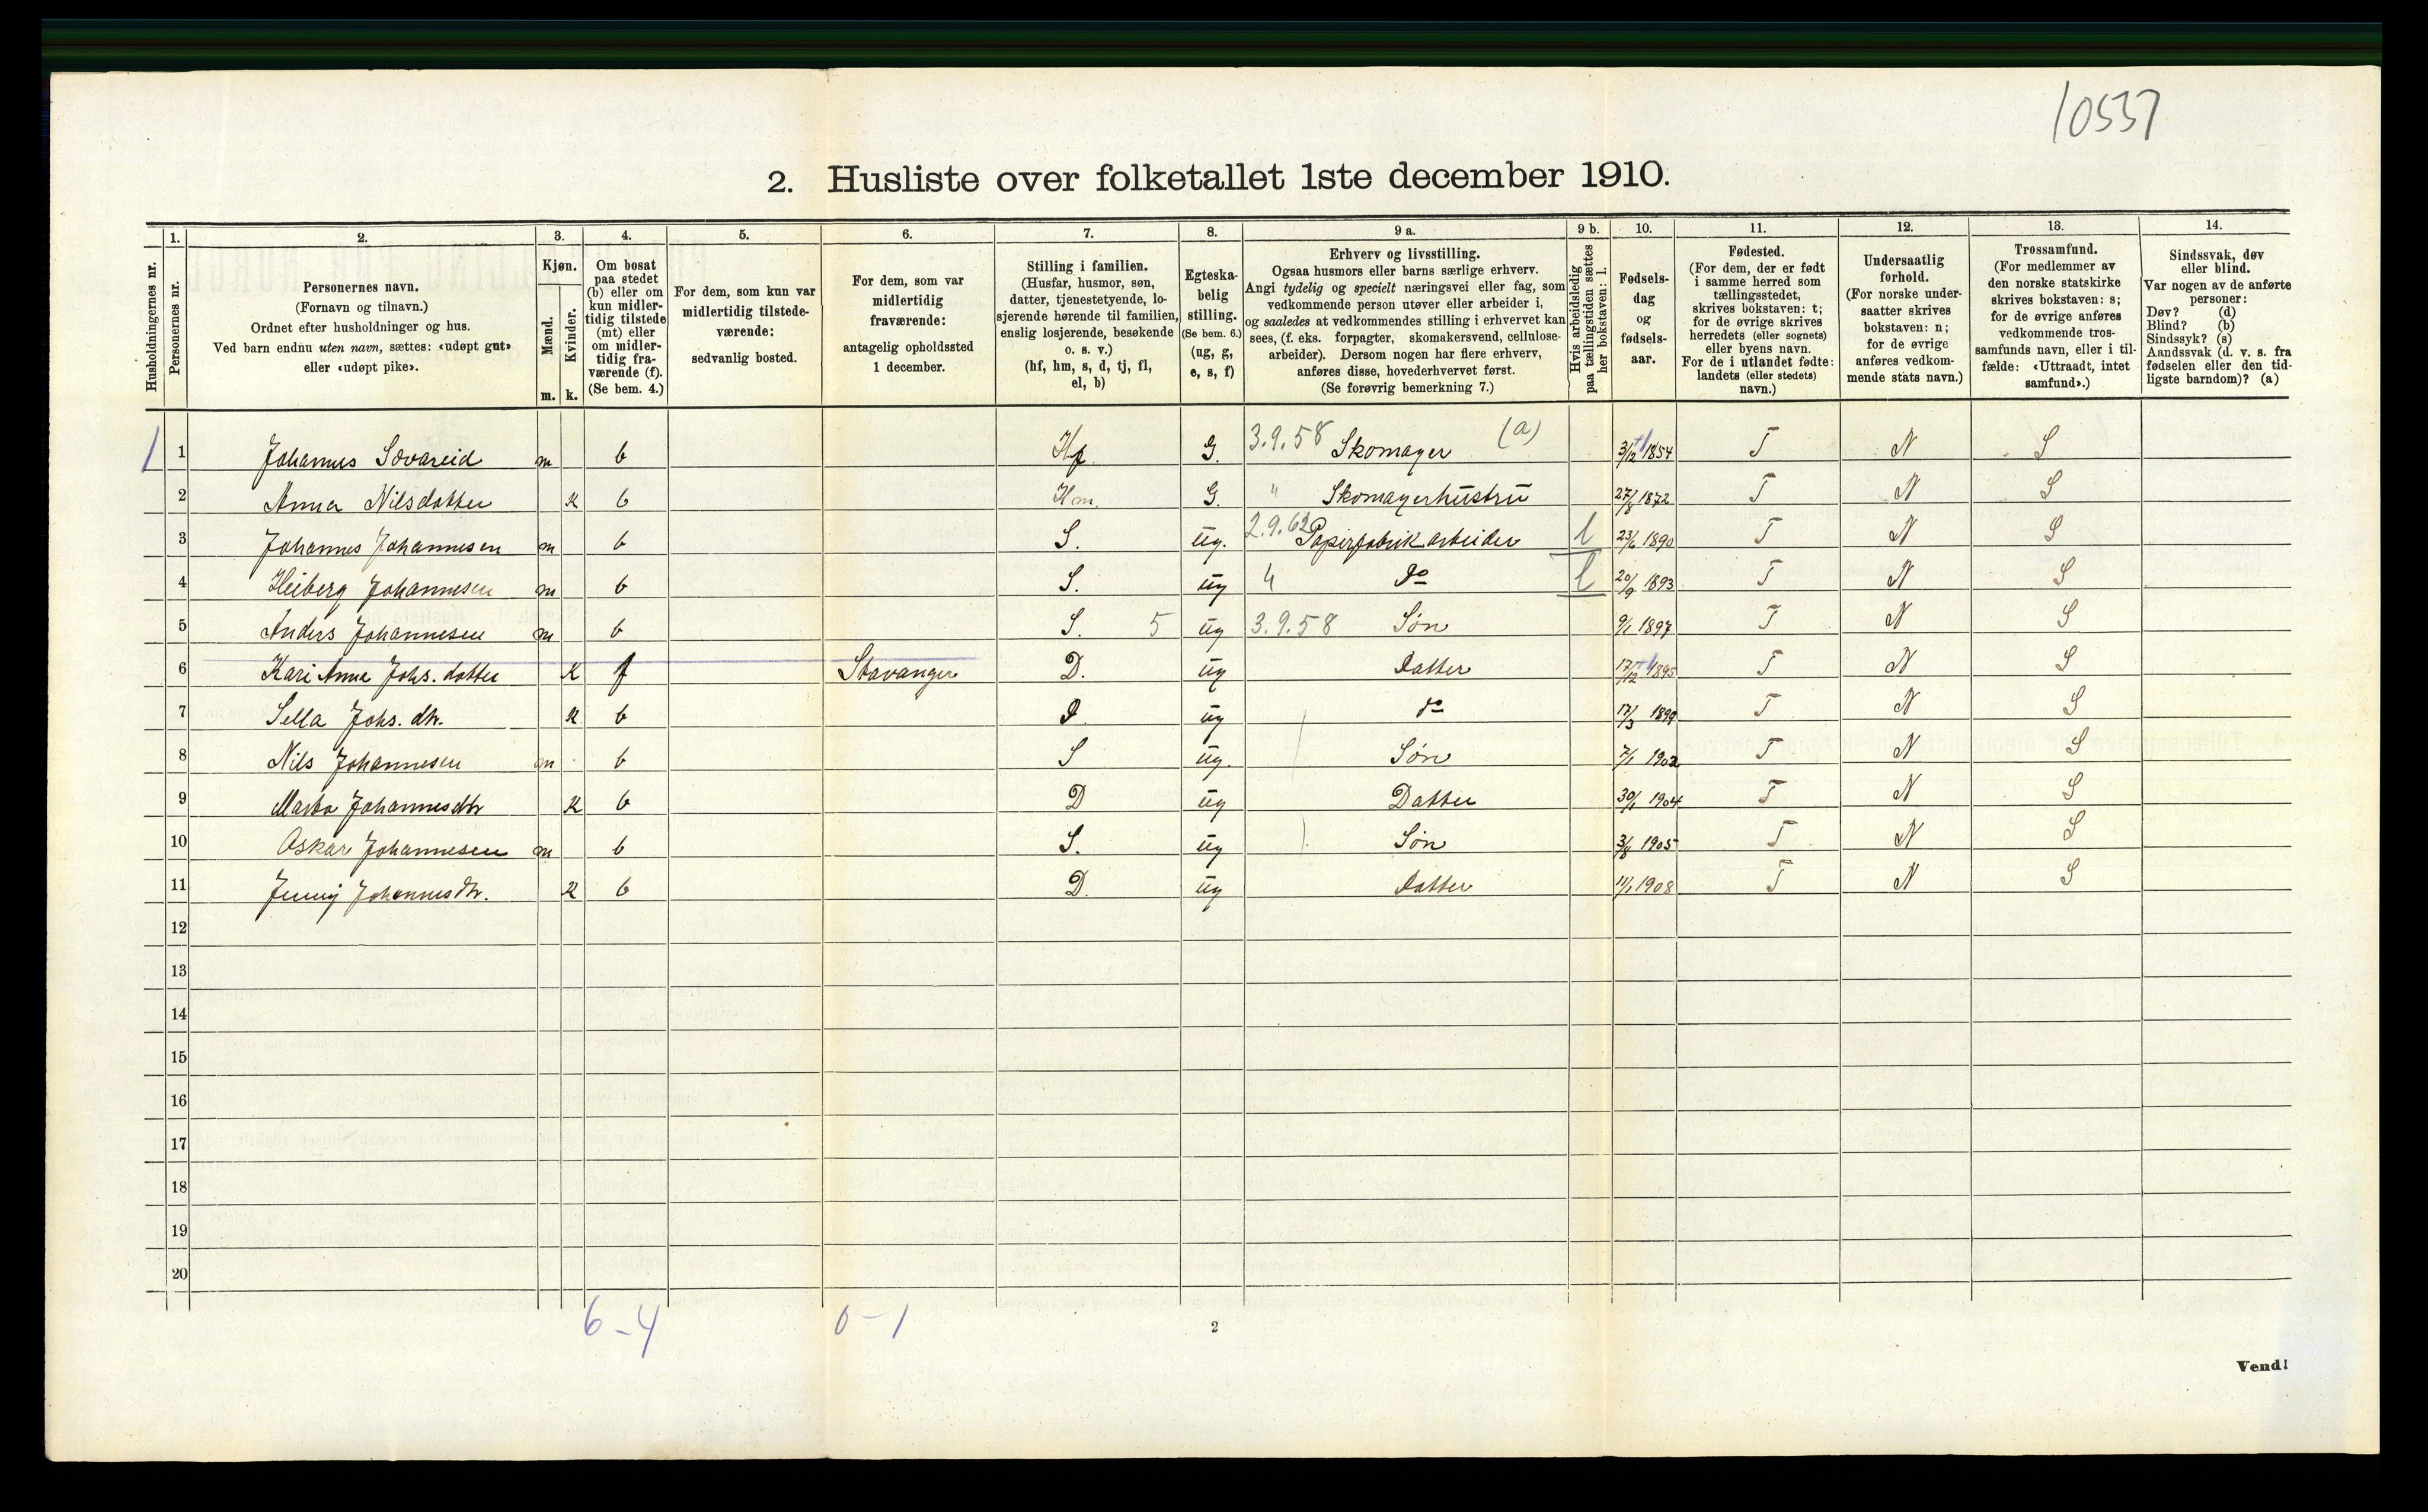 10537
2. Husliste over folketallet 1ste december 1910.
Husholdningernes nr.
1. Personernes nr.
2. Personernes navn.
(Fornavn og tilnavn.)
Ordnet efter husholdninger og hus.
Ved barn endnu uten navn, sættes: «udøpt gut»
eller «udøpt pike».
3. Kjøn.
Mænd. Kvinder.
m. k.
4. Om bosat
paa stedet
(b) eller om
kun midler-
tidig tilstede
(mt) eller
om midler-
tidig fra-
værende (f).
(Se bem. 4.)
5. For dem, som kun var
midlertidig tilstede-
værende:
sedvanlig bosted.
6. For dem, som var
midlertidig
fraværende:
antagelig opholdssted
1 december.
7. Stilling i familien.
(Husfar, husmor, søn,
datter, tjenestetyende, lo-
sjerende hørende til familien,
enslig losjerende, besøkende
o. s. v.)
(hf, hm, s, d, tj, fl,
el, b)
8. Egteska-
belig
stilling.
(Se bem. 6.)
(ug, g,
e, s, f)
9 a. Erhverv og livsstilling.
Ogsaa husmors eller barns særlige erhverv.
Angi tydelig og specielt næringsvei eller fag, som
vedkommende person utøver eller arbeider i,
og saaledes at vedkommendes stilling i erhvervet kan
sees, (f. eks. forpagter, skomakersvend, cellulose-
arbeider). Dersom nogen har flere erhverv,
anføres disse, hovederhvervet først.
(Se forøvrig bemerkning 7.)
9 b. Hvis arbeidsledig
paa tællingstiden sættes
her bokstaven: l.
10. Fødsels-
dag
og
fødsels-
aar.
11. Fødested.
(For dem, der er født
i samme herred som
tællingsstedet,
skrives bokstaven: t;
for de øvrige skrives
herredets (eller sognets)
eller byens navn.
For de i utlandet fødte:
landets (eller stedets)
navn.)
12. Undersaatlig
forhold.
(For norske under-
saatter skrives
bokstaven: n;
for de øvrige
anføres vedkom-
mende stats navn.)
13. Trossamfund.
(For medlemmer av
den norske statskirke
skrives bokstaven: s;
for de øvrige anføres
vedkommende tros-
samfunds navn, eller i til-
fælde: «Uttraadt, intet
samfund».)
14. Sindssvak, døv
eller blind.
Var nogen av de anførte
personer:
Døv? (d)
Blind? (b)
Sindssyk? (s)
Aandssvak (d. v. s. fra
fødselen eller den tid-
ligste barndom)? (a)
1 1 Johannes Sævareid m b Hf G. 3.9.58 Skomager (a) 3/12 1854 T N S
2 Anna Nilsdatter K b Hm. G. " Skomagerhustru 27/8 1872 T N S
3 Johannes Johannesen m b S. ug. 2.9.62 Papirfabrikarbeider l 23/6 1890 T N S
4 Heiberg Johannesen m b S. ug " do l 20/9 1893 T N S
5 Anders Johannesen m b S. 5 ug 3.9.58 Søn 9/1 1897 T N S
6 Kari Anna Johs. datter K f Stavanger D. ug datter 17/12 1895 T N S
7 Sella Johs. dtr. K b d. ug do 17/3 1899 T N S
8 Nils Johannesen m b S ug. Søn 7/1 1902 T N S
9 Marta Johannesdtr K b D ug Datter 30/1 1904 T N S
10 Oskar Johannesen m b S. ug Søn 3/8 1905 T N S
11 Jenny Johannesdtr. K b D. ug datter 11/1 1908 T N S
12
13
14
15
16
17
18
19
20
6-4 0-1
2
Vend!